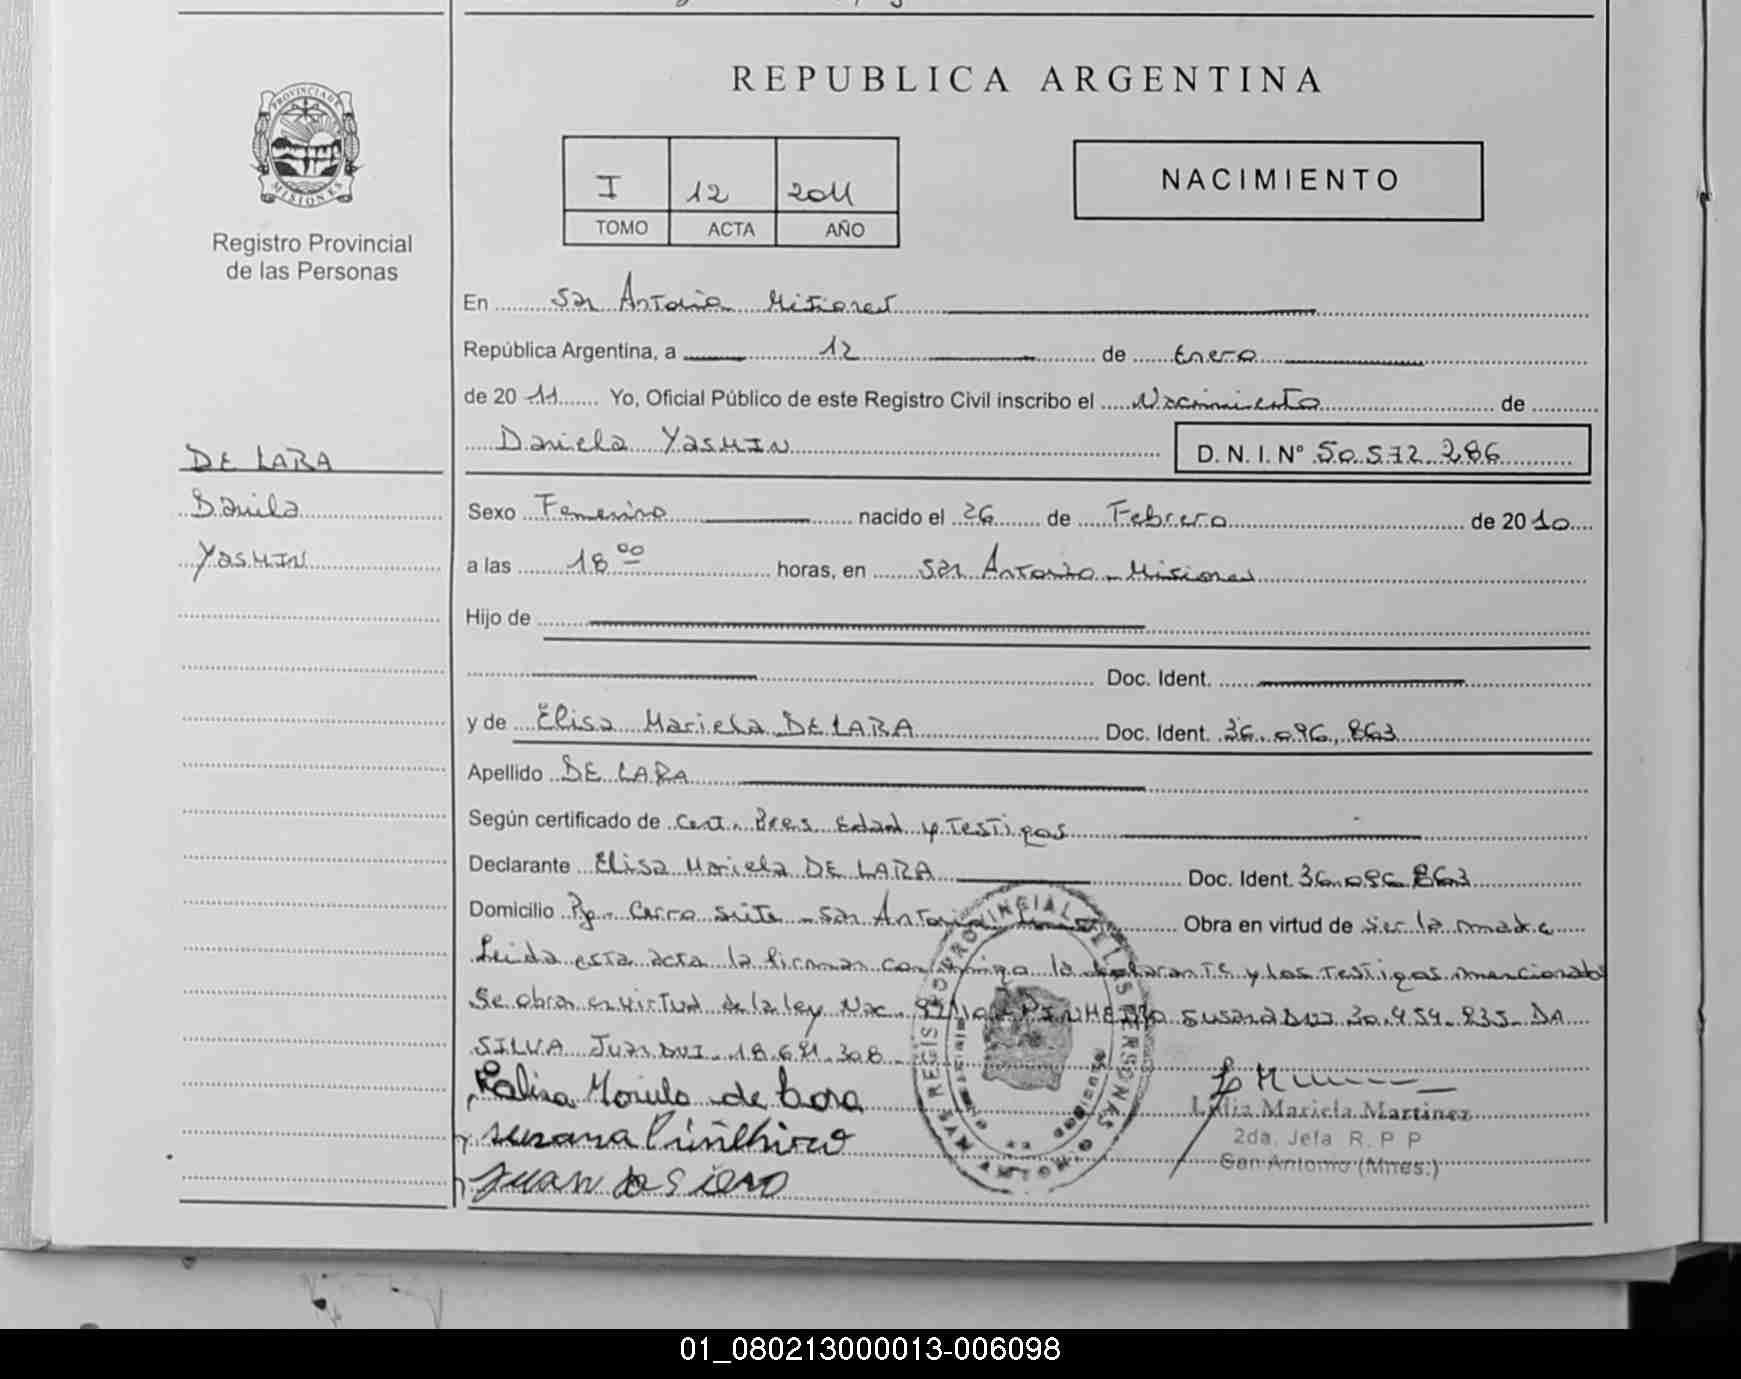 REPUBLICA ARGENTINA
PROVINCIA DE
MISIONES
Registro Provincial
de las Personas
I 12 2011
TOMO ACTA AÑO
NACIMIENTO
En San Antonio Misiones
República Argentina, a 12 de Enero
de 2011 Yo, Oficial Público de este Registro Civil inscribo el Nacimiento de
Daniela YasMIN D. N. I. N° 50.572.286
DE LARA
Danila
YasMIN
Sexo Femenino nacido el 26 de Febrero de 2010
a las 18 00 horas, en San Antonio - Misiones
Hijo de
Doc. Ident.
y de Elisa Mariela DE LARA Doc. Ident. 36.096.863
Apellido DE LARA
Según certificado de Cert. Pres. Edad y Testigos
Declarante Elisa Mariela DE LARA Doc. Ident. 36.096.863
Domicilio San Antonio Obra en virtud de ser la madre
Leida esta acta la firman conmigo la declarante y los testigos mencionado
Se obran en virtud de la ley Nac. PINHEIRO Susana DNI 30.454.835 DA
SILVA Juan DNI. 18.691.308
Elisa Mariela de Lara
susana Piñheiro
Juan da Silva
REGISTRO PROVINCIAL DE LAS PERSONAS
Lidia Mariela Martinez
2da. Jefa R. P. P
San Antonio (Mnes.)
01_080213000013-006098